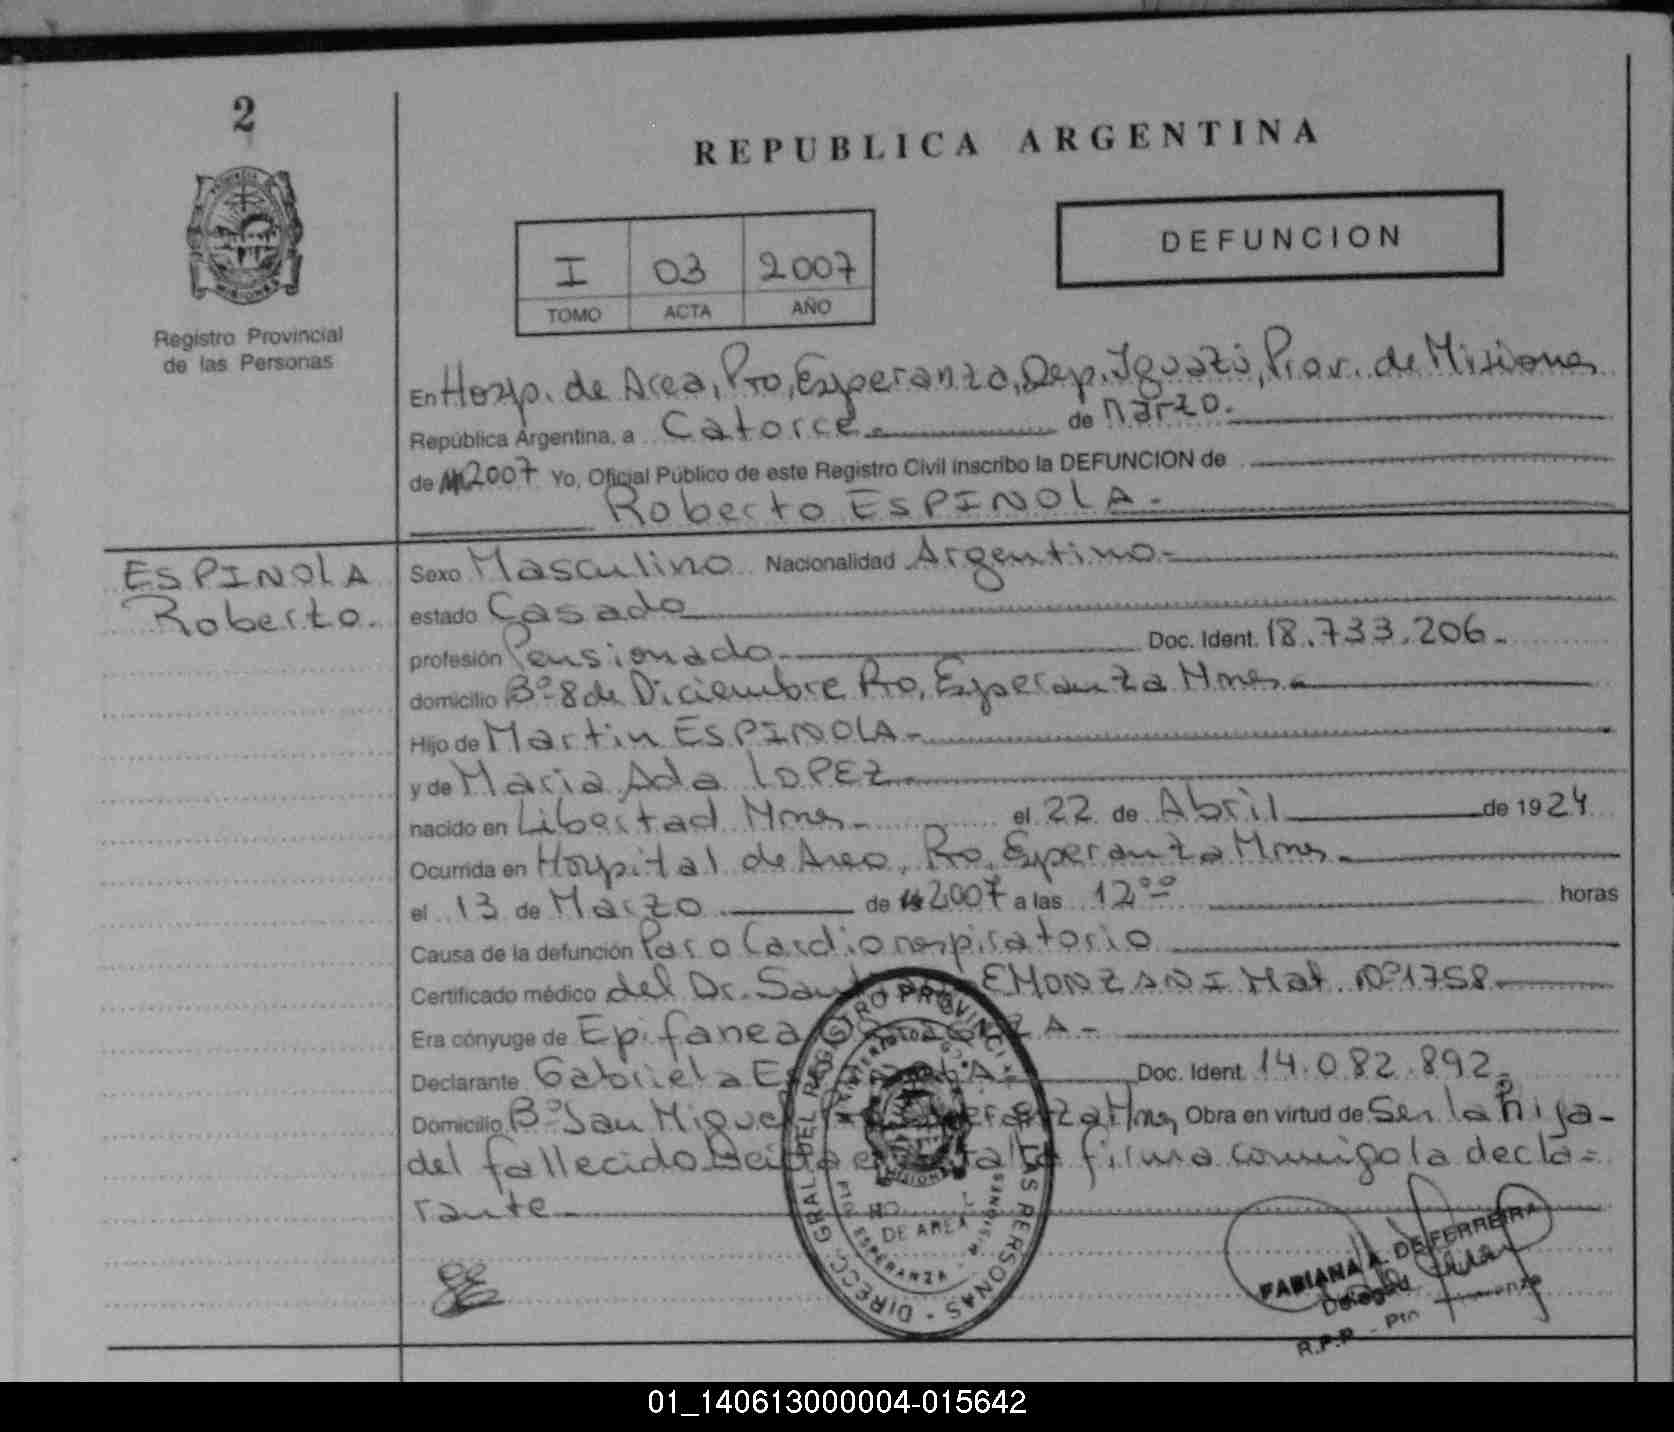 2
REPUBLICA ARGENTINA
DEFUNCION
I 03 2007
TOMO ACTA AÑO
Registro Provincial
de las Personas
En Hosp. de Area, Pto, Esperanza, Dep. Iguazú, Prov. de Misiones
República Argentina, a Catorce.- de Marzo.-
de 2007 Yo, Oficial Público de este Registro Civil inscribo la DEFUNCION de
Roberto ESPINOLA.-
ESPINOLA
Roberto.
Sexo Masculino Nacionalidad Argentino.-
estado Casado
profesión Pensionado.- Doc. Ident. 18.733.206.-
domicilio Bº 8 de Diciembre Pto, Esperanza Mnes.-
Hijo de Martin ESPINOLA.-
y de Maria Ada LOPEZ.-
nacido en Libertad Mnes.- el 22 de Abril de 1924
Ocurrida en Hospital de Area, Pto, Esperanza Mnes.-
el 13 de Marzo de 2007 a las 12ºº horas
Causa de la defunción Paro Cardiorespiratorio
Certificado médico del Dr. EMONZANI Mat. Nº 1758
Era cónyuge de Epifanea
Declarante Gabriela Doc. Ident. 14.082.892.-
Domicilio Bº San Miguel Mnes Obra en virtud de Ser la hija-
del fallecido firma conmigo la decla-
rante.-
DIRECC. GRAL. DEL REGISTRO PROVINCIAL DE LAS PERSONAS
DE AREA
PTO ESPERANZA - MISIONES
FABIANA A. DE FERREIRA
R.P.P. - Pto
01_140613000004-015642